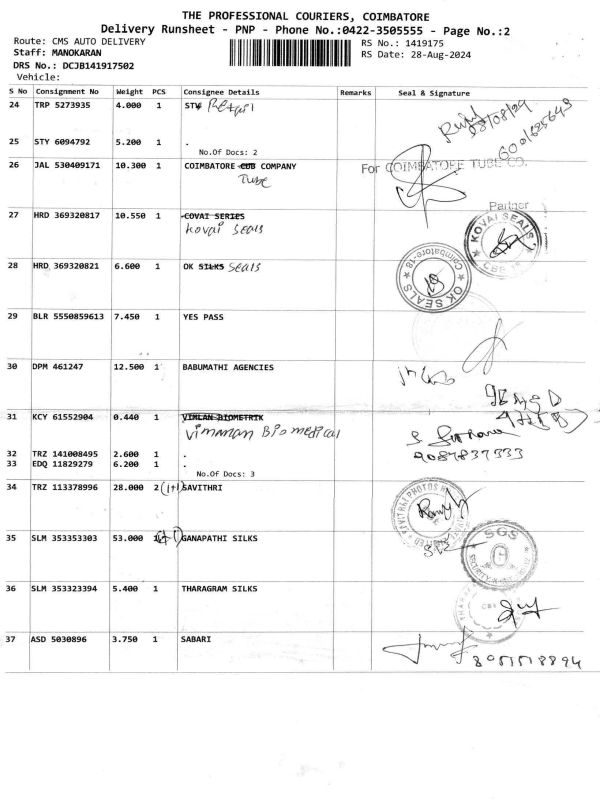 THE PROFESSIONAL COURIERS, COIMBATORE
Delivery Runsheet - PNP - Phone No.:0422-3505555 - Page No.:2
Route: CMS AUTO DELIVERY RS No.: 1419175
Staff: MANOKARAN RS Date: 28-Aug-2024
DRS No.: DCJB141917502
Vehicle:
S No Consignment No Weight PCS Consignee Details Remarks Seal & Signature
24 TRP 5273935 4.000 1 STY Retail
28/08/24
6001625643
25 STY 6094792 5.200 1 .
No.Of Docs: 2
26 JAL 530409171 10.300 1 COIMBATORE CDB COMPANY
Tube
For COIMBATORE TUBE CO.
Partner
27 HRD 369320817 10.550 1 COVAI SERIES
Kovai Seals
KOVAI SEALS
28 HRD 369320821 6.600 1 OK SILKS Seals
Coimbatore-18
OK SEALS
29 BLR 5550859613 7.450 1 YES PASS
30 DPM 461247 12.500 1 BABUMATHI AGENCIES
31 KCY 61552904 0.440 1 VIMLAN BIOMETRIK
Vimman Biomedical
9087837333
32 TRZ 141008495 2.600 1 .
33 EDQ 11829279 6.200 1 .
No.Of Docs: 3
34 TRZ 113378996 28.000 2 (1+1) SAVITHRI
SAVITRI PHOTOS
35 SLM 353353303 53.000 GANAPATHI SILKS
SGS
SECURITY
36 SLM 353323394 5.400 1 THARAGRAM SILKS
37 ASD 5030896 3.750 1 SABARI